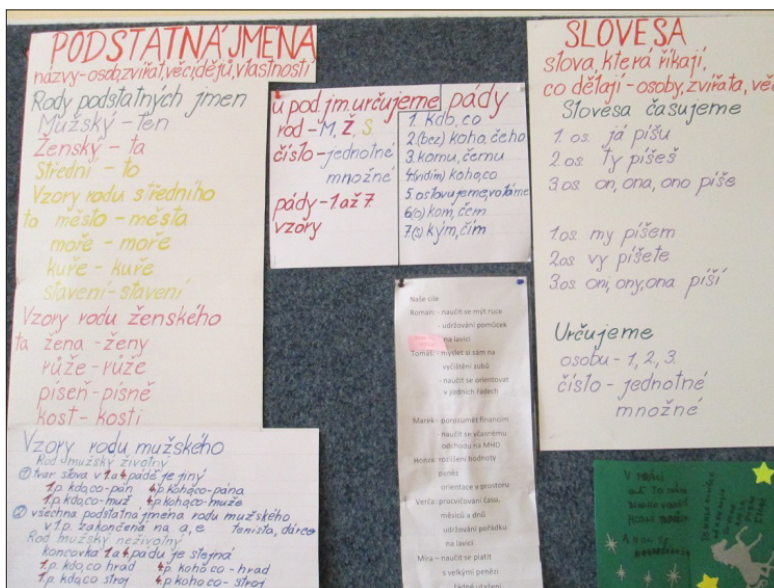 PODSTATNÁ JMÉNA
názvy-osob,zvířat,věcí,dějů,vlastností
Rody podstatných jmen
Mužský - ten
Ženský - ta
Střední - to
Vzory rodu středního
to město - města
moře - moře
kuře - kuře
stavení - stavení
Vzory rodu ženského
ta žena - ženy
růže - růže
píseň - písně
kost - kosti
Vzory rodu mužského
Rod mužský životný
1 tvar slova v 1. a 4. pádě je jiný
1.p. kdo,co-pán 4.p koho,co-pána
1.p. kdo,co-muž 4.p koho,co-muže
2 všechna podstatná jména rodu mužského
v 1.p. zakončená na a, e tenista, dárce
Rod mužský neživotný
koncovka 1. a 4. pádu je stejná
1.p. kdo,co hrad 4.p. koho co - hrad
1.p. kdo,co stroj 4.p koho co - stroj
u pod. jm. určujeme
rod - M, Ž, S
číslo - jednotné
množné
pády - 1 až 7
vzory
pády
1. kdo, co
2.(bez) koho, čeho
3. komu, čemu
4.(vidím) koho,co
5 oslovujeme,voláme
6(o) kom, čem
7(s) kým, čím
Naše cíle
Roman: - naučit se mýt ruce
- udržování pomůcek
na lavici
Tomáš: - myslet si sám na
vyčištění zubů
- naučit se orientovat
v jízdních řádech
Marek - porozumět financím
- naučit se včasnému
odchodu na MHD
Honza: rozlišení hodnoty
peněz
orientace v prostoru
Verča: procvičování času,
měsíců a dnů
udržování pořádku
na lavici
Míra - naučit se platit
s velkými penězi
SLOVESA
slova, která říkají,
co dělají - osoby, zvířata, věc
Slovesa časujeme
1. os. já píšu
2 os. ty píšeš
3 os. on, ona, ono píše
1.os. my píšem
2.os. vy píšete
3.os. oni, ony, ona píší
Určujeme
osobu - 1, 2, 3
číslo - jednotné
množné